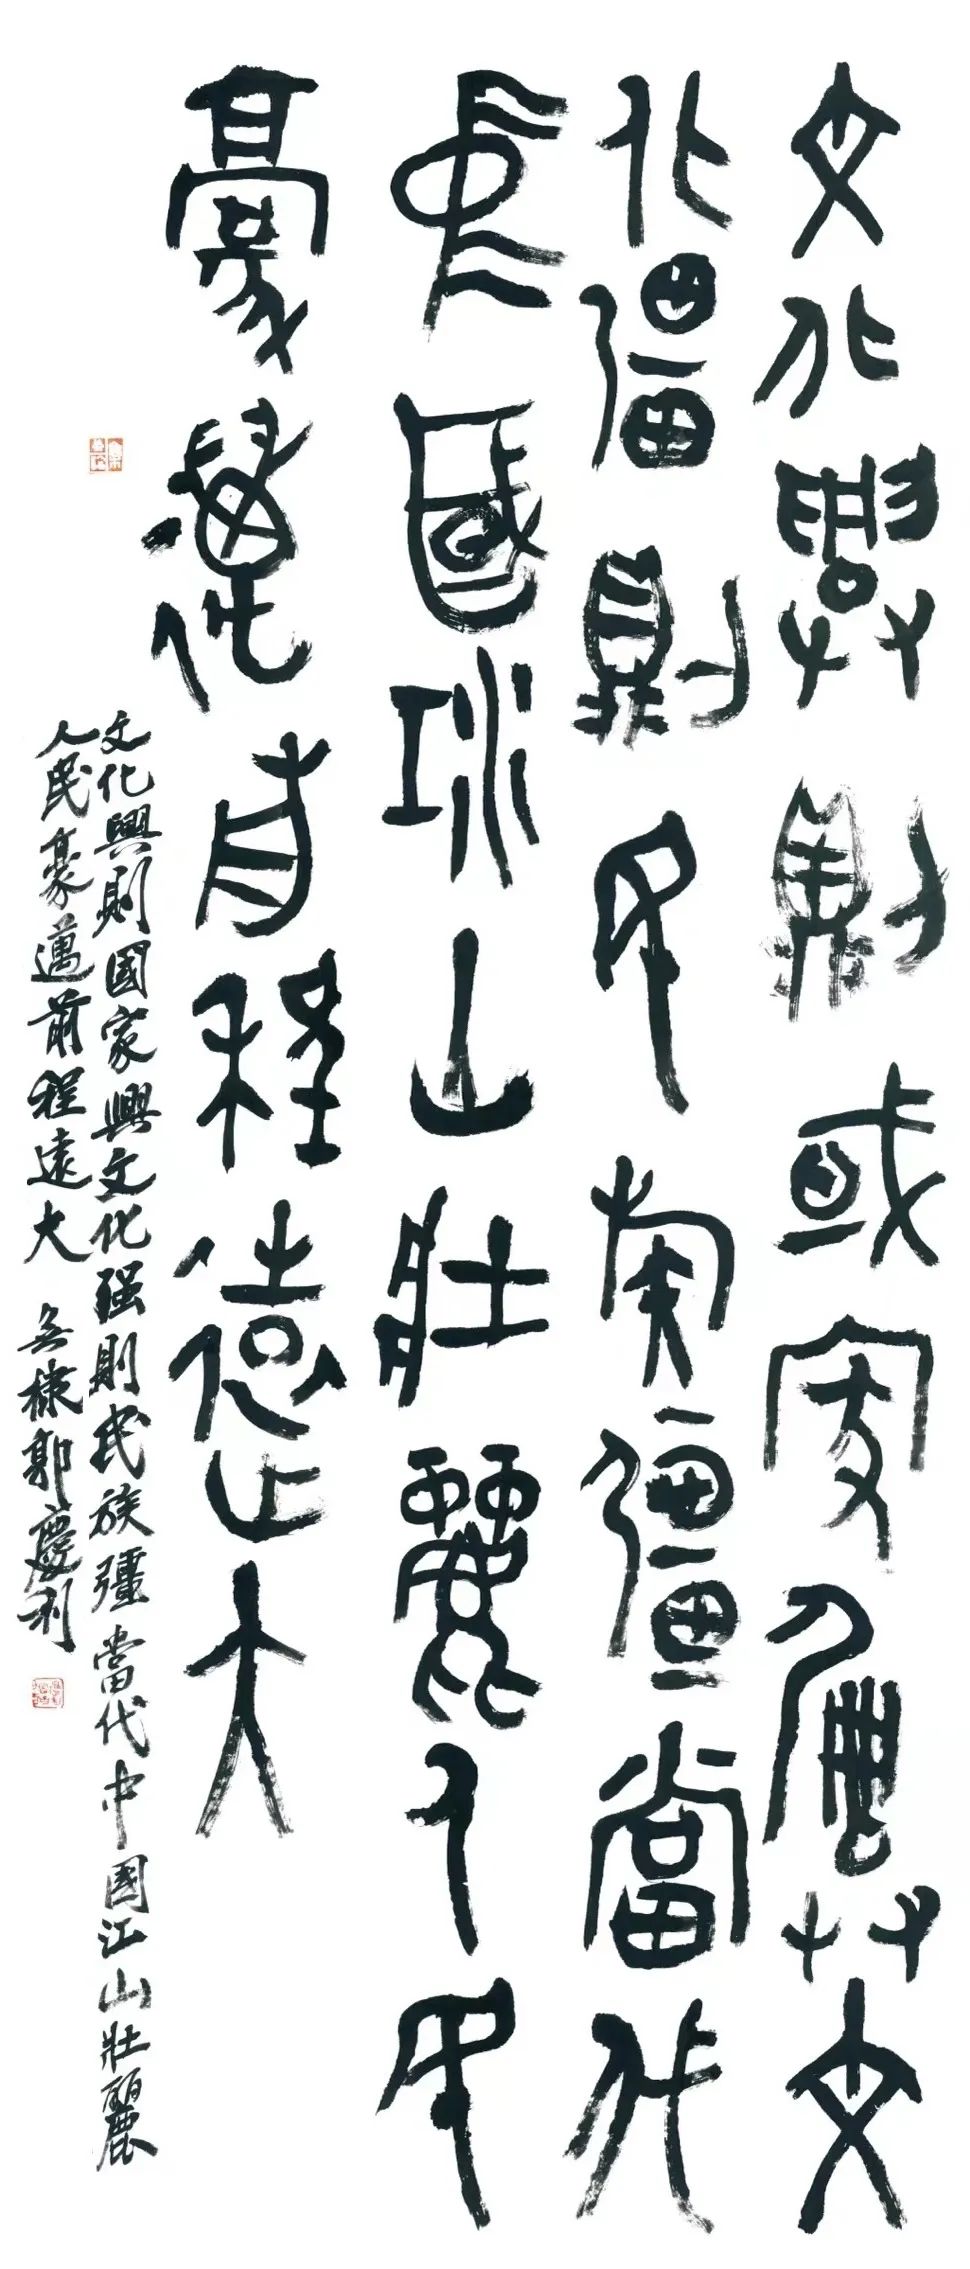 文化興則國家興文
化彊則民族彊當代
中國江山壯麗人民
豪邁前程遠大
文化興則國家興文化強則民族彊當代中國江山壯麗
人民豪邁前程遠大 無棣郭慶利